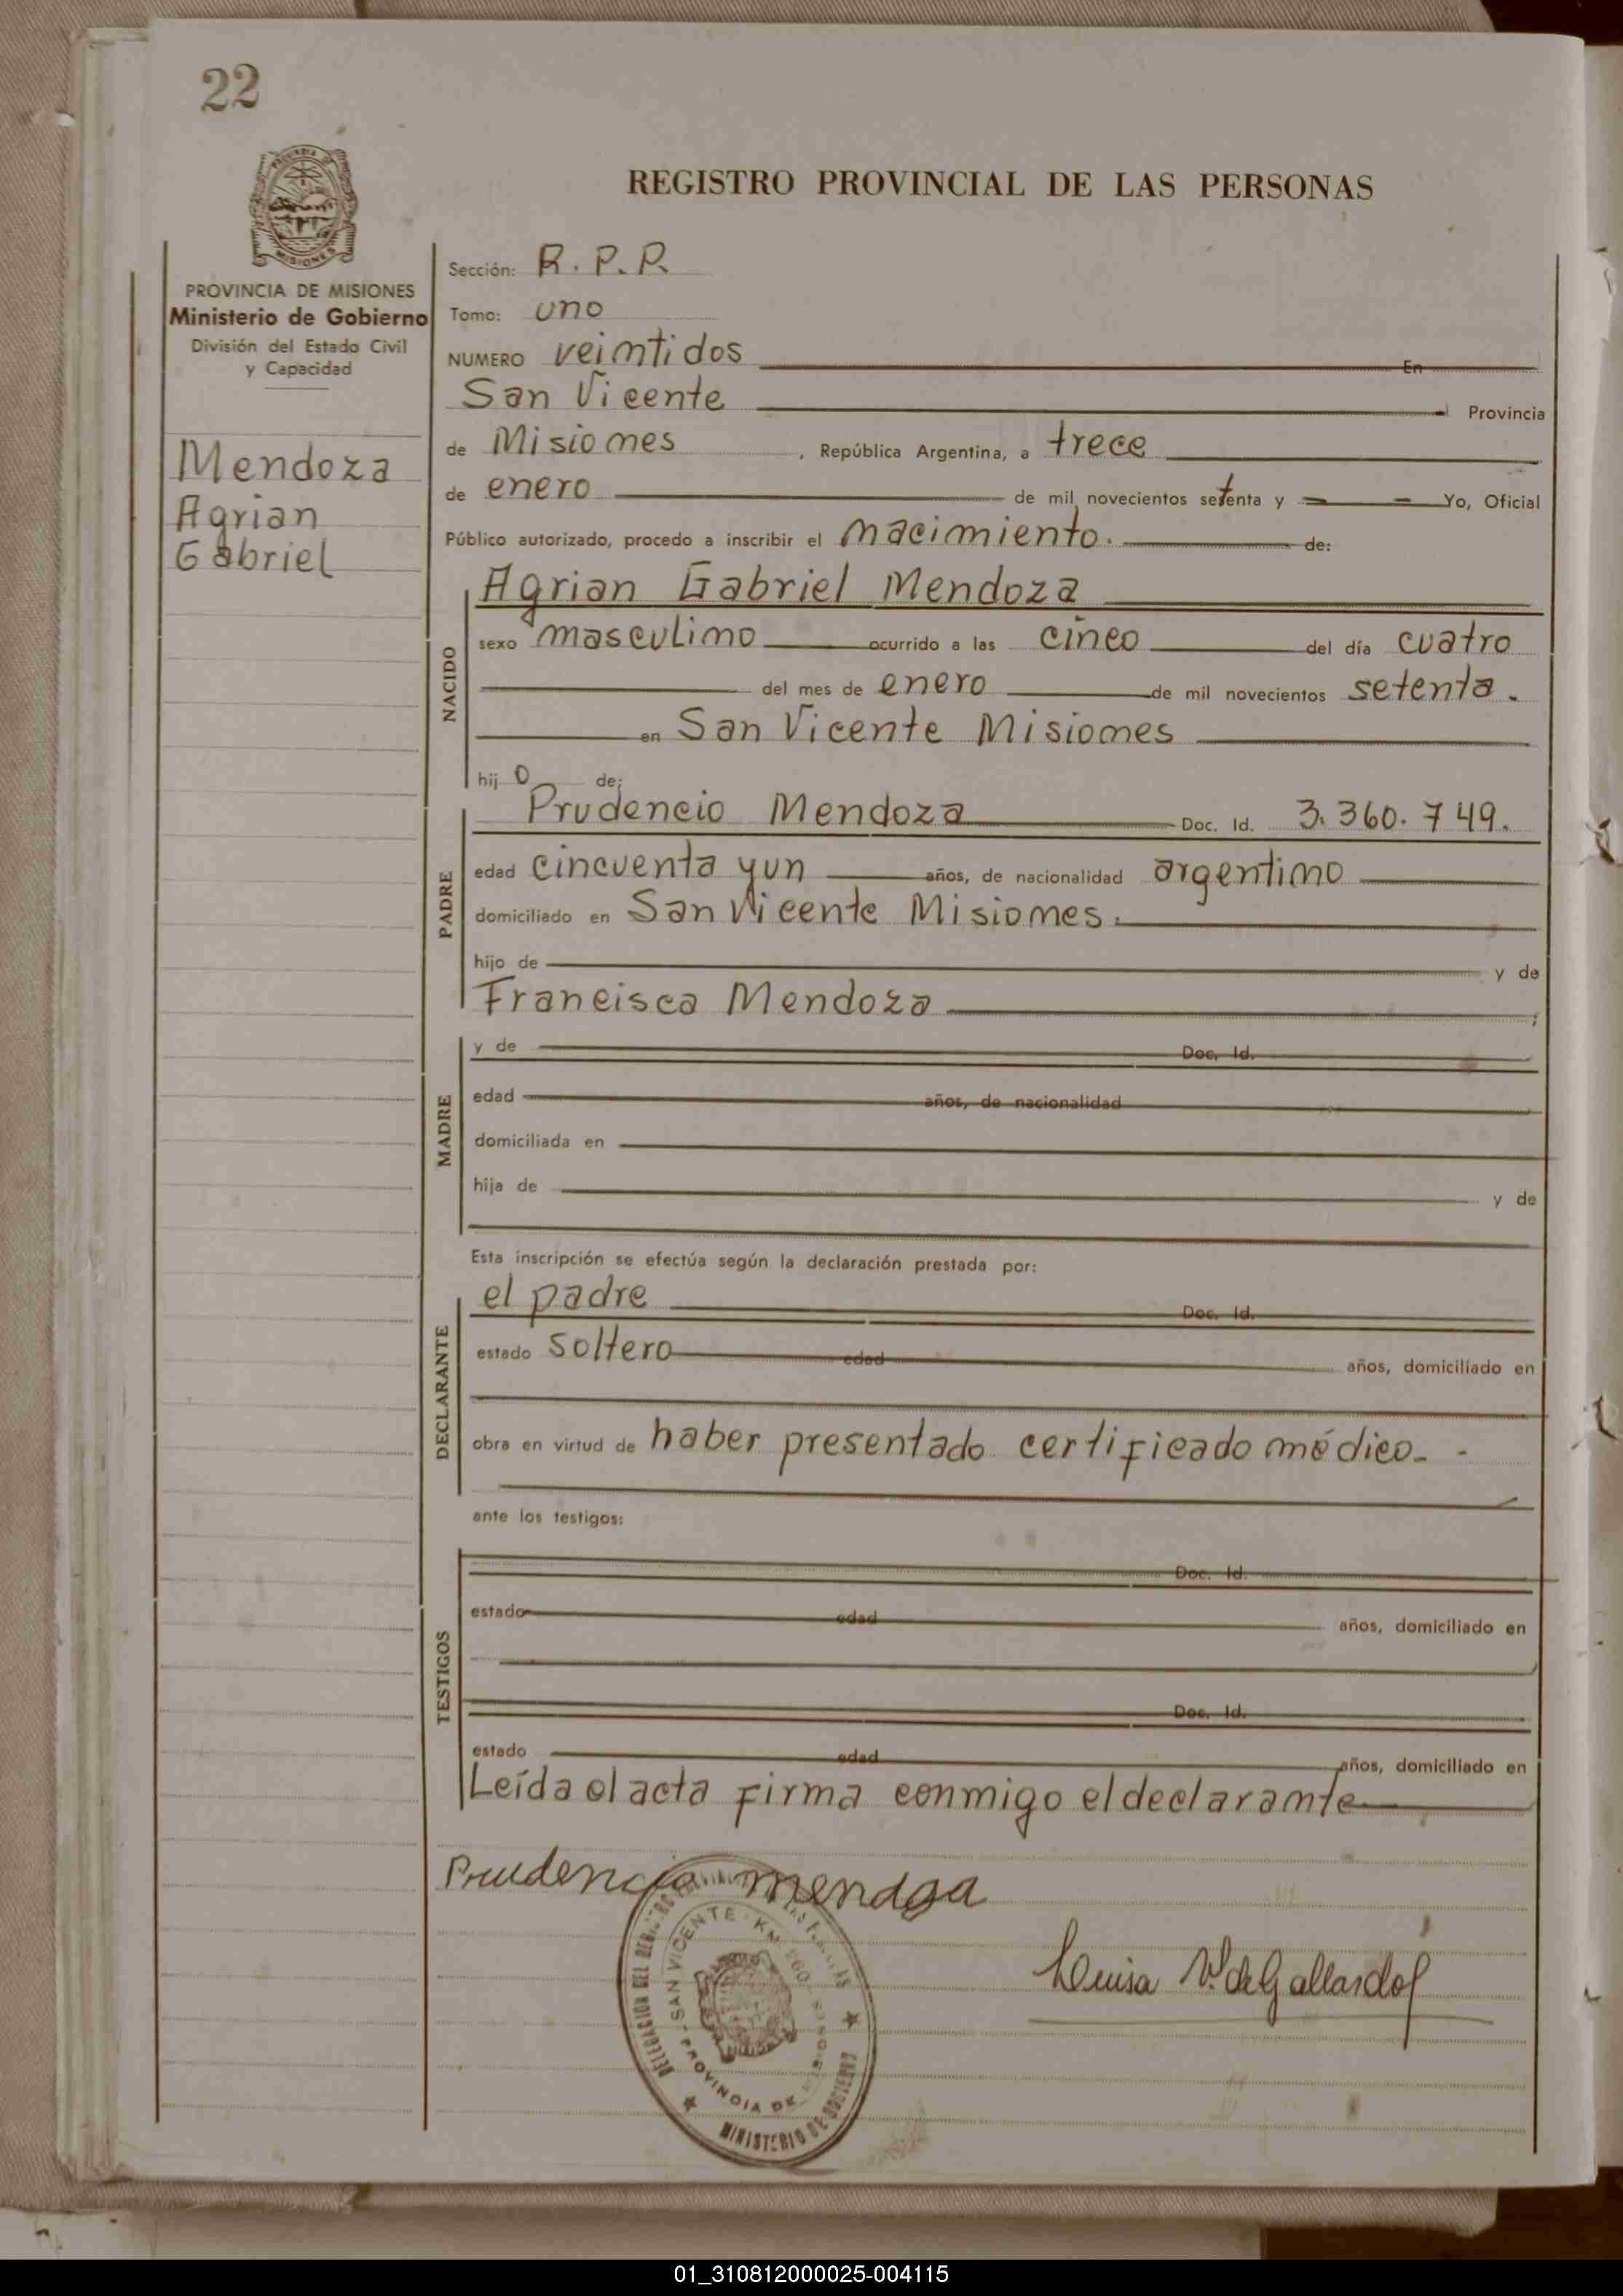 22
REGISTRO PROVINCIAL DE LAS PERSONAS
MISIONES
PROVINCIA DE MISIONES
Ministerio de Gobierno
División del Estado Civil
y Capacidad
Mendoza
Agrian
Gabriel
Sección: R. P. P.
Tomo: uno
NUMERO veintidos En
San Vicente Provincia
de Misiones , República Argentina, a trece
de enero de mil novecientos setenta y = = Yo, Oficial
Público autorizado, procedo a inscribir el nacimiento. de:
NACIDO
Agrian Gabriel Mendoza
sexo masculino ocurrido a las cinco del día cuatro
del mes de enero de mil novecientos setenta.
en San Vicente Misiones
hij o de:
PADRE
Prudencio Mendoza Doc. Id. 3.360.749.
edad cincuenta y un años, de nacionalidad argentino
domiciliado en San Vicente Misiones.
hijo de y de
Francisca Mendoza ;
MADRE
y de Doc. Id.
edad años, de nacionalidad
domiciliada en
hija de y de
Esta inscripción se efectúa según la declaración prestada por:
DECLARANTE
el padre Doc. Id.
estado soltero edad años, domiciliado en
obra en virtud de haber presentado certificado médico. -
ante los testigos:
TESTIGOS
Doc. Id.
estado edad años, domiciliado en
Doc. Id.
estado edad años, domiciliado en
Leída el acta firma conmigo el declarante
Prudencio Mendoza
Luisa V. de Gallardo
DELEGACION DEL REGISTRO PROVINCIAL DE LAS PERSONAS
SAN VICENTE - KM.
PROVINCIA DE MISIONES
MINISTERIO DE GOBIERNO
01_310812000025-004115